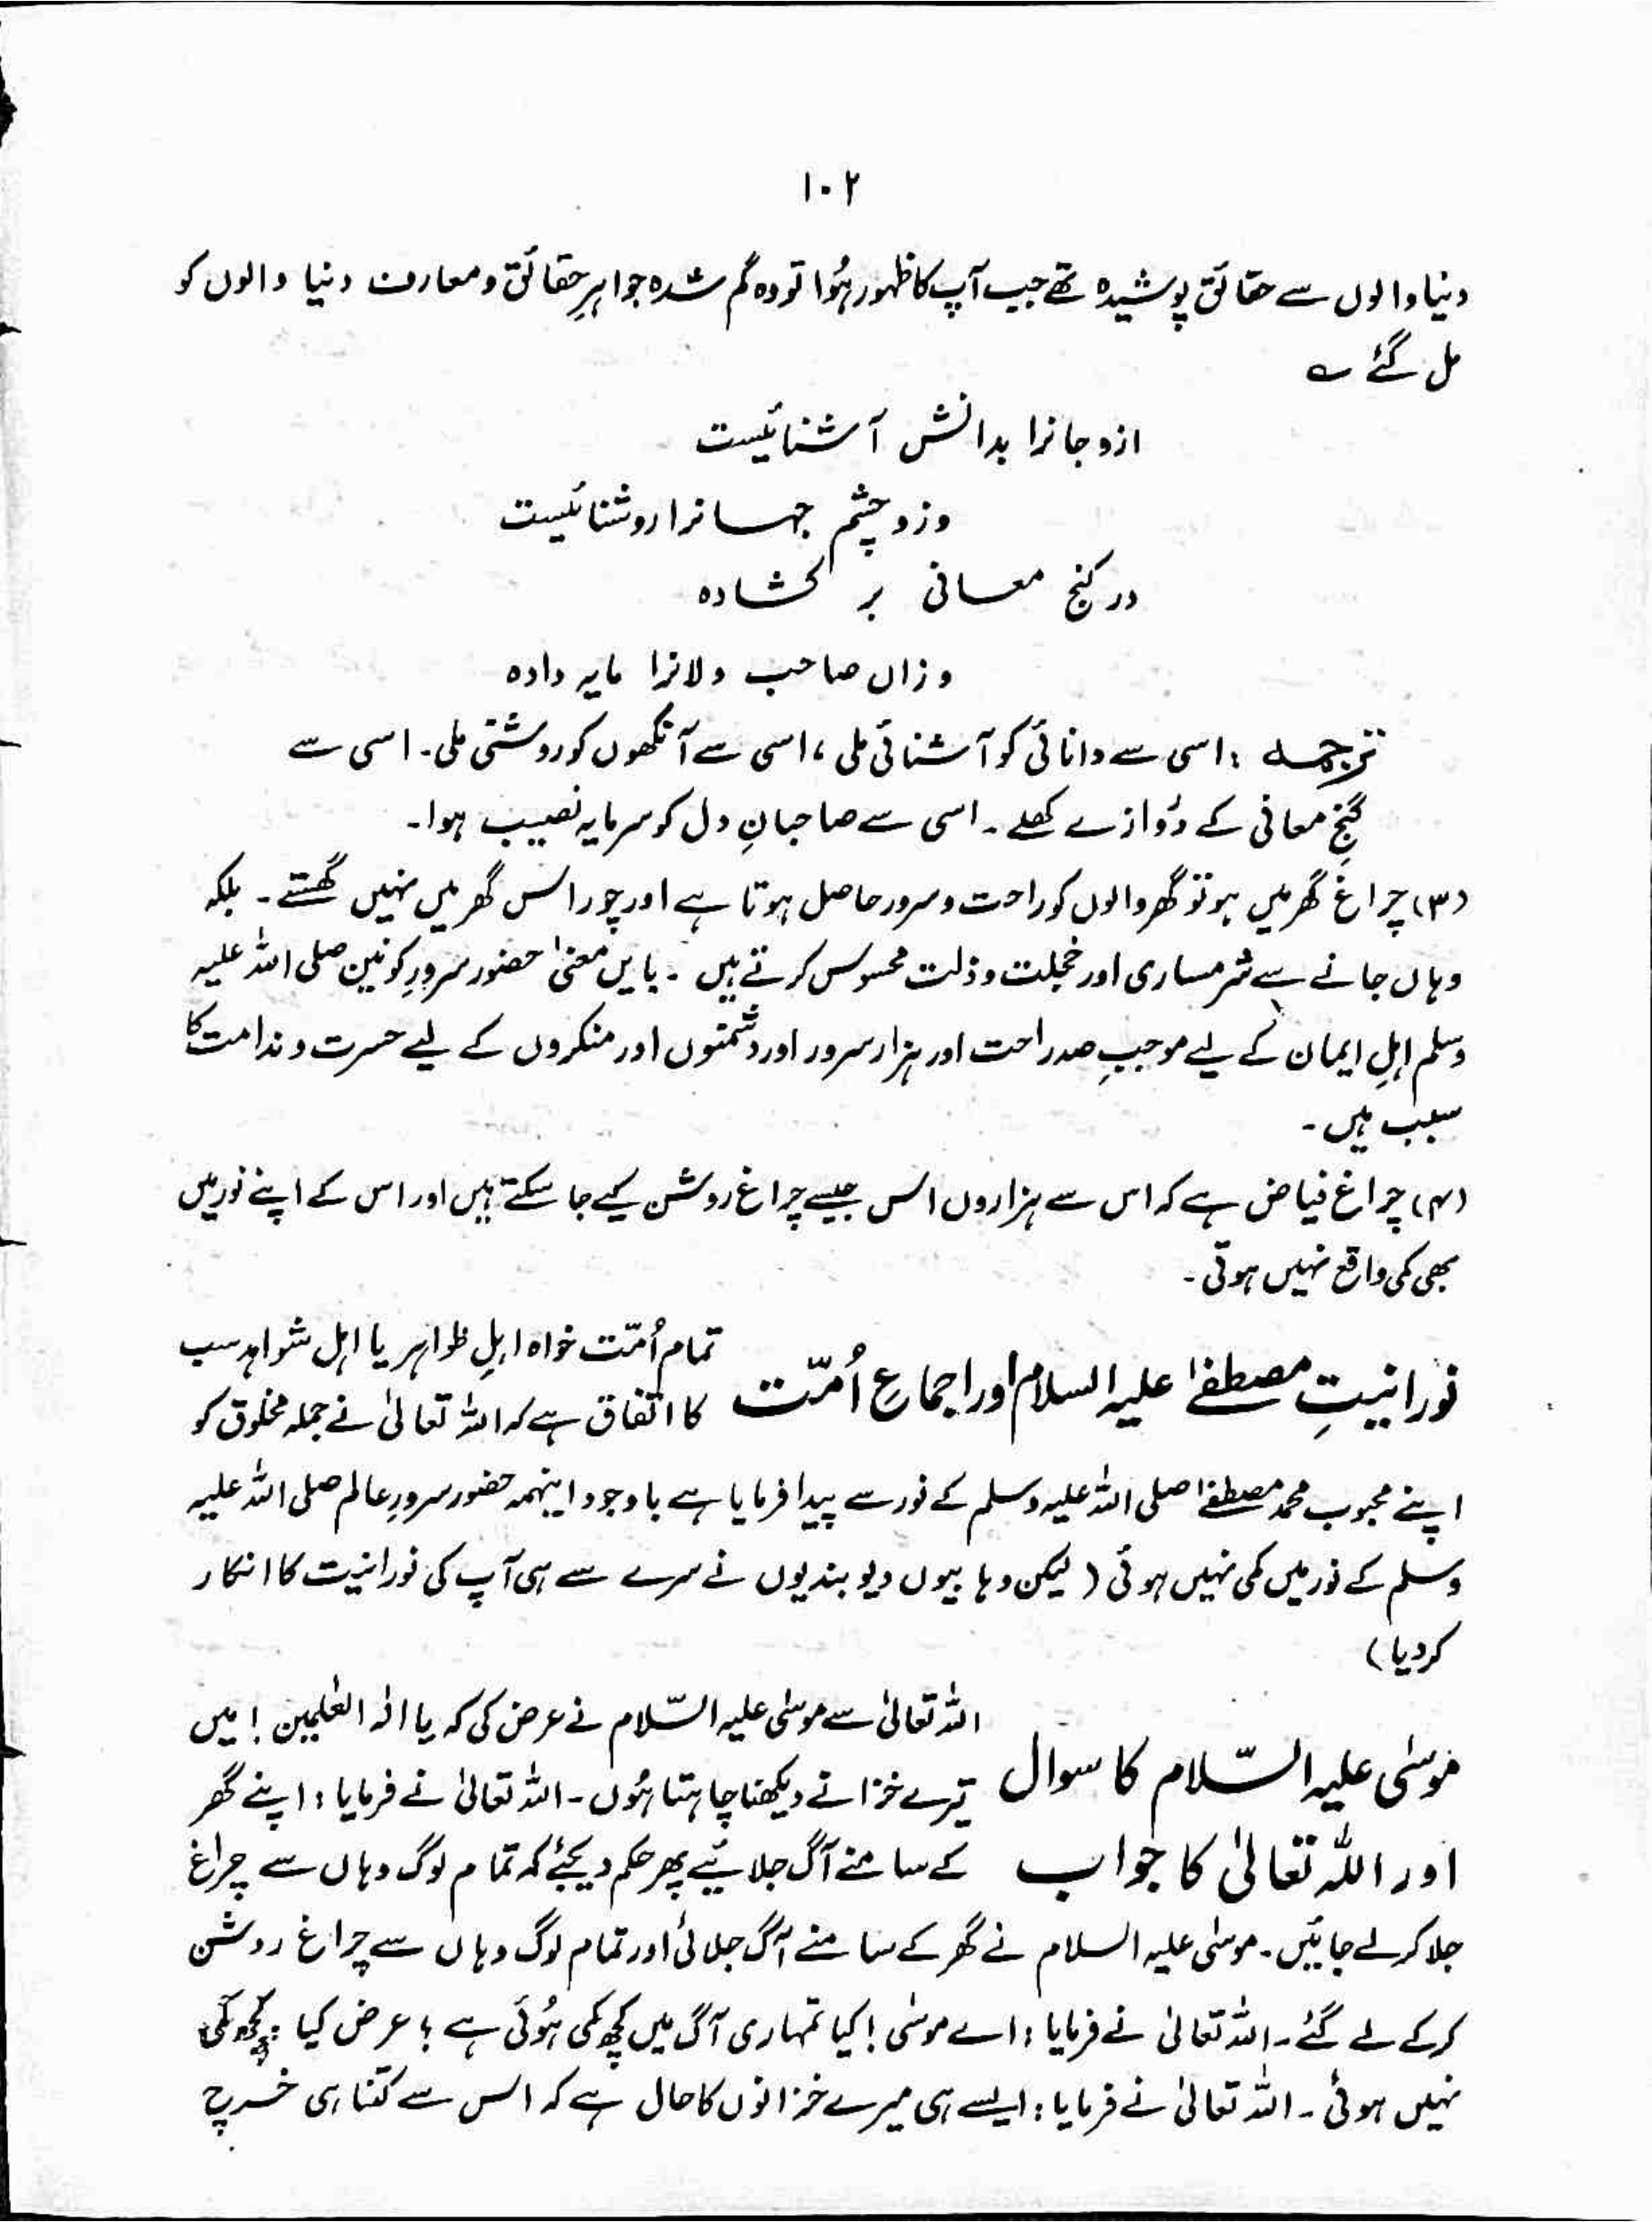 ۱۰۲
دنیا والوں سے حقائق پوشیدہ تھے جب آپ کا ظہور ہُوا تو وہ گم شدہ جواہرِ حقائق و معارف دنیا والوں کو
مل گئے ؎
ازو جانرا بدانش آشنائیست
وزو چشم جہانرا روشنائیست
در گنج معانی بر کشادہ
وزاں صاحب دلانرا مایہ دادہ
ترجمہ : اسی سے دانائی کو آشنائی ملی ، اسی سے آنکھوں کو روشنی ملی۔ اسی سے
گنجِ معانی کے دُوازے کھلے۔ اسی سے صاحبانِ دل کو سرمایہ نصیب ہوا۔
(۳) چراغ گھر میں ہو تو گھر والوں کو راحت و سرور حاصل ہوتا ہے اور چور اس گھر میں نہیں گھستے۔ بلکہ
وہاں جانے سے شرمساری اور خجلت و ذلت محسوس کرتے ہیں ۔ بایں معنیٰ حضور سرورِ کونین صلی اللہ علیہ
وسلم اہلِ ایمان کے لیے موجبِ صد راحت اور ہزار سرور اور دشمنوں اور منکروں کے لیے حسرت و ندامت کا
سبب ہیں ۔
(۴) چراغ فیاض ہے کہ اس سے ہزاروں اس جیسے چراغ روشن کیے جا سکتے ہیں اور اس کے اپنے نور میں
بھی کمی واقع نہیں ہوتی ۔
نورانیتِ مصطفےٰ علیہ السلام اور اجماعِ اُمّت
تمام اُمّت خواہ اہلِ ظواہر یا اہل شواہد سب
کا اتفاق ہے کہ اللہ تعالیٰ نے جملہ مخلوق کو
اپنے محبوب محمد مصطفےٰ صلی اللہ علیہ وسلم کے نور سے پیدا فرمایا ہے باوجود اینہمہ حضور سرورِ عالم صلی اللہ علیہ
وسلم کے نور میں کمی نہیں ہوئی ( لیکن وہابیوں دیوبندیوں نے سرے سے ہی آپ کی نورانیت کا انکار
کردیا )
موسٰی علیہ السّلام کا سوال
اور اللہ تعالیٰ کا جواب
اللہ تعالیٰ سے موسٰی علیہ السّلام نے عرض کی کہ یا الٰہ العٰلمین ! میں
تیرے خزانے دیکھنا چاہتا ہُوں ۔ اللہ تعالیٰ نے فرمایا : اپنے گھر
کے سامنے آگ جلائیے پھر حکم دیجئے کہ تمام لوگ وہاں سے چراغ
جلا کر لے جائیں۔ موسٰی علیہ السلام نے گھر کے سامنے آگ جلائی اور تمام لوگ وہاں سے چراغ روشن
کرکے لے گئے۔ اللہ تعالیٰ نے فرمایا : اے موسٰی ! کیا تمہاری آگ میں کچھ کمی ہُوئی ہے ؟ عرض کیا : کچھ کمی
نہیں ہوئی ۔ اللہ تعالیٰ نے فرمایا : ایسے ہی میرے خزانوں کا حال ہے کہ اس سے کتنا ہی خرچ